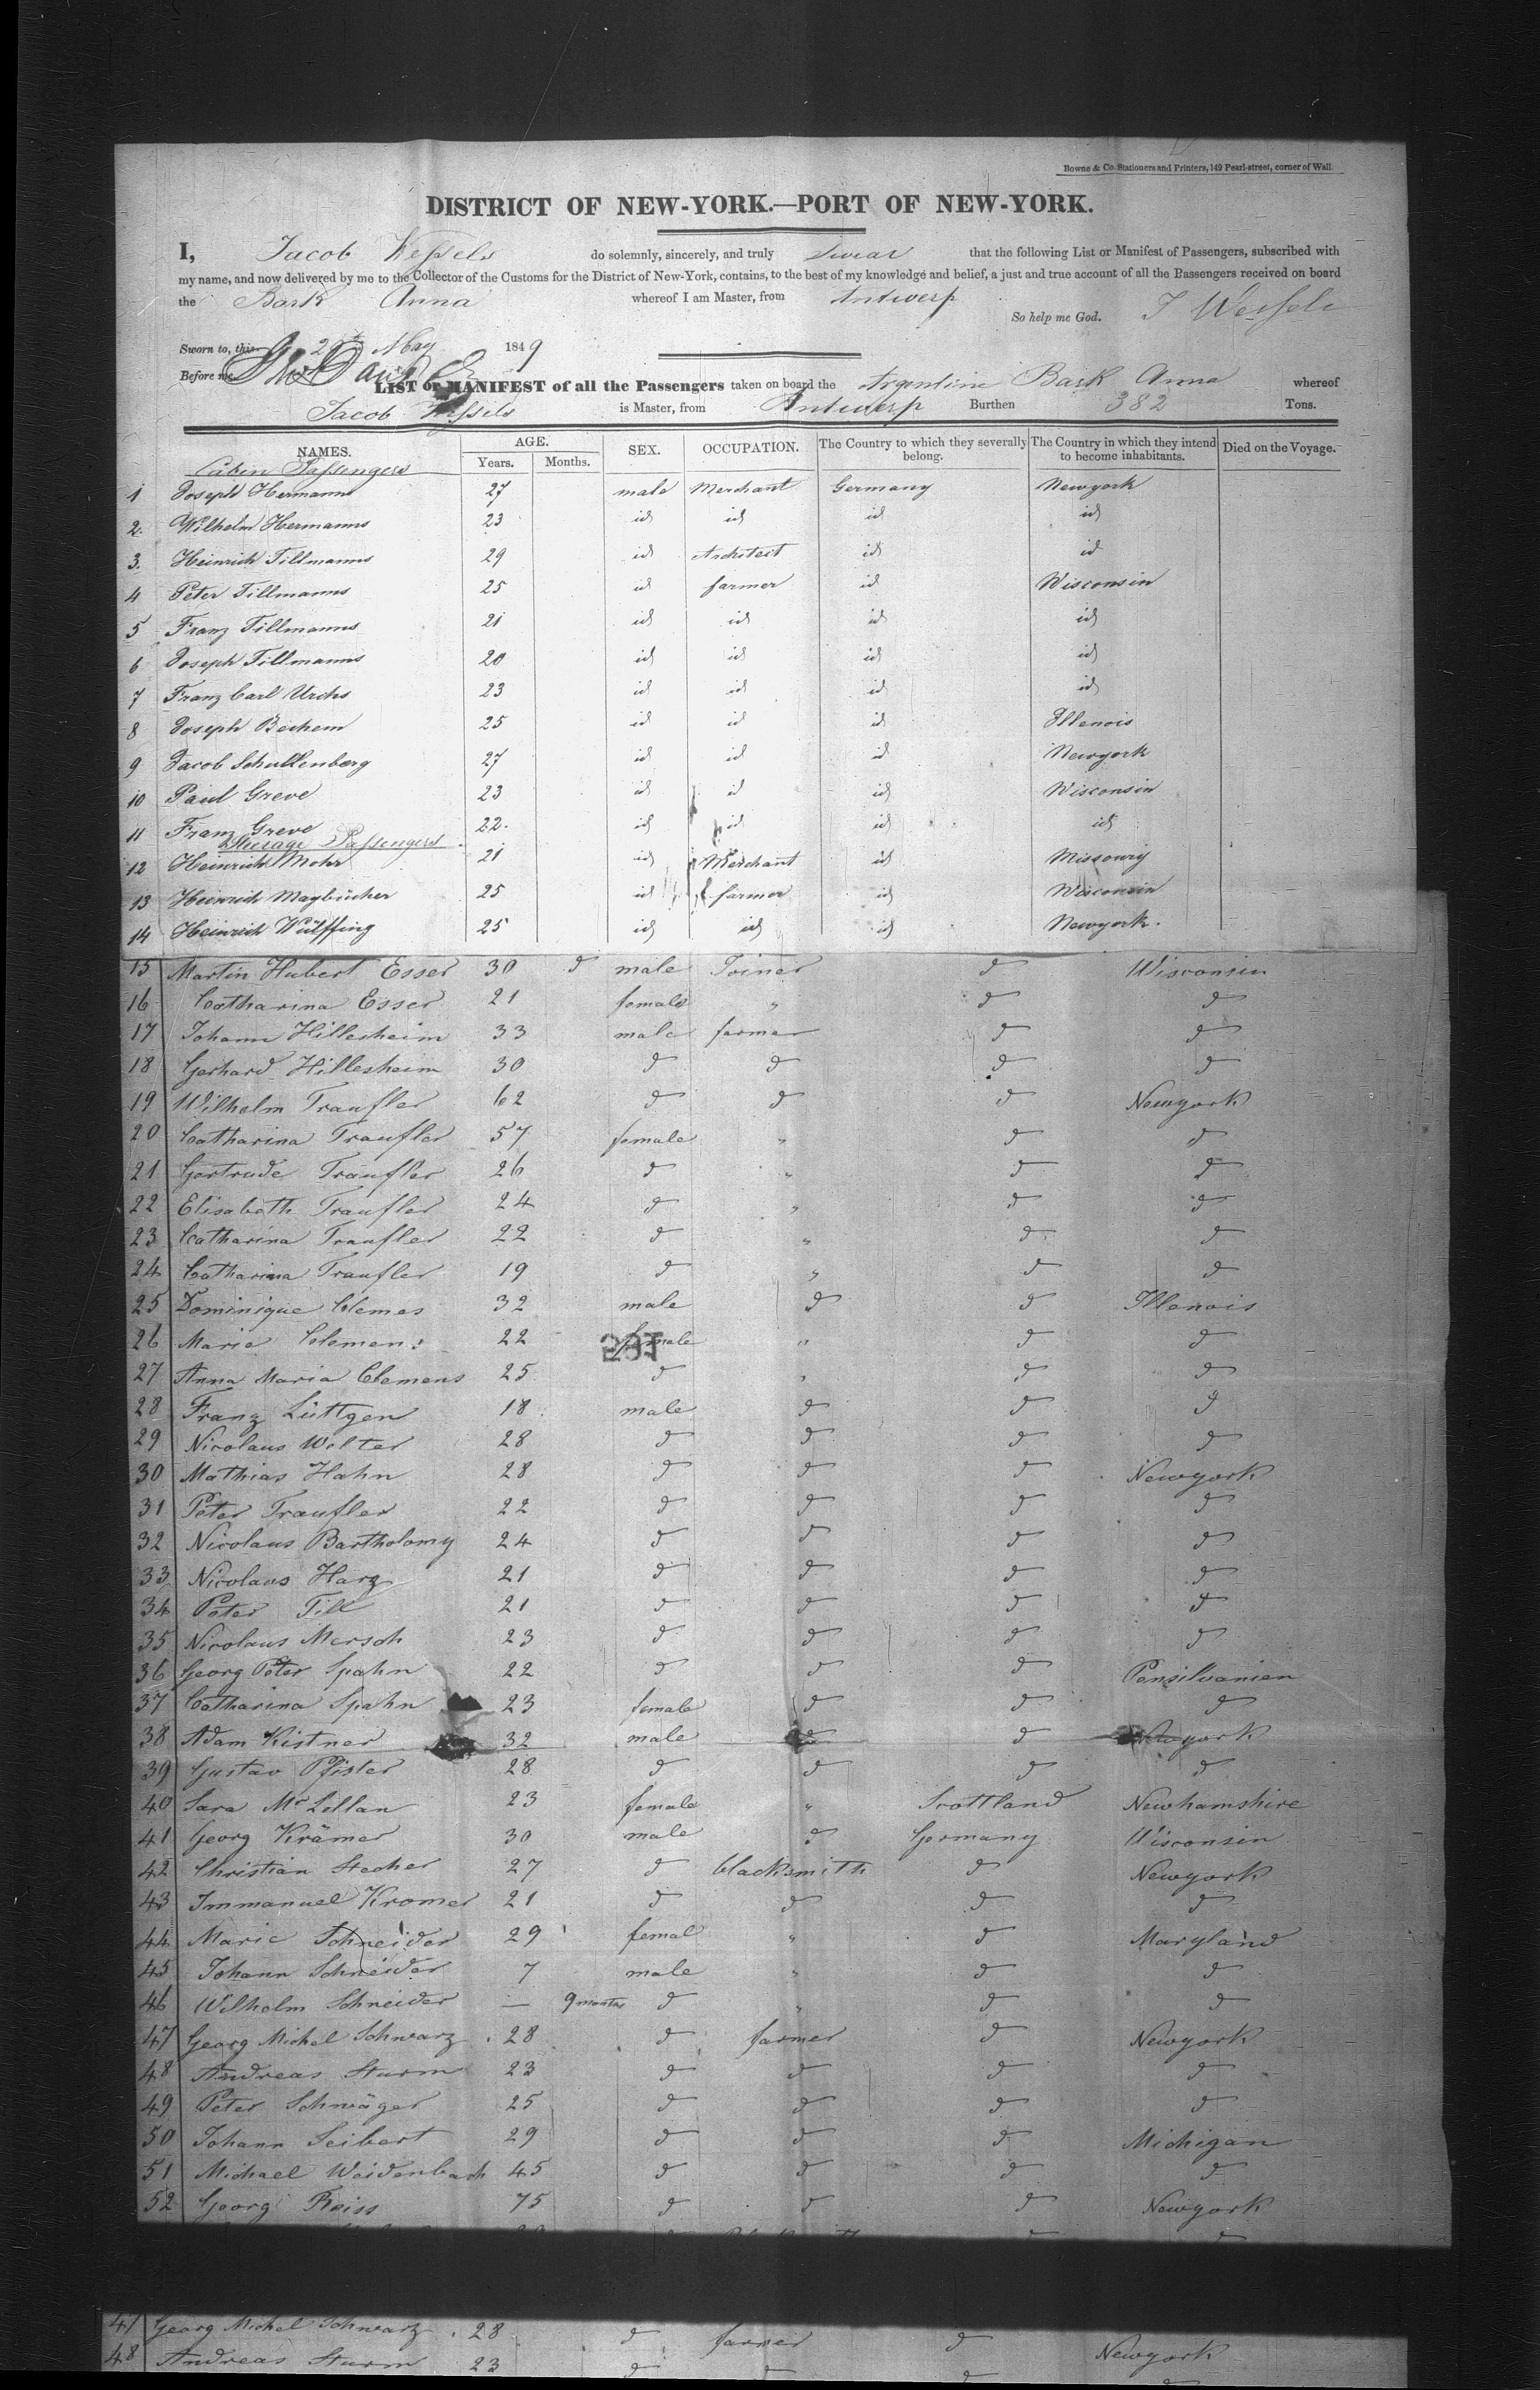 Bowne & Co. Stationers and Printers, 149 Pearl-street, corner of Wall.
DISTRICT OF NEW-YORK.—PORT OF NEW-YORK.
I, Jacob Wessels do solemnly, sincerely, and truly swear that the following List or Manifest of Passengers, subscribed with
my name, and now delivered by me to the Collector of the Customs for the District of New-York, contains, to the best of my knowledge and belief, a just and true account of all the Passengers received on board
the Bark Anna whereof I am Master, from Antwerp
So help me God. J Wessels
Sworn to, this 29th May 1849
Before me,
LIST or MANIFEST of all the Passengers taken on board the Argentine Bark Anna whereof
Jacob Wessels is Master, from Antwerp Burthen 382 Tons.
NAMES. AGE. Years. Months. SEX. OCCUPATION. The Country to which they severally belong. The Country in which they intend to become inhabitants. Died on the Voyage.
Cabin Passengers
1 Joseph Hermanns 27 male Merchant Germany Newyork
2. Wilhelm Hermanns 23 id id id id
3. Heinrich Tillmanns 29 id Architect id id
4 Peter Tillmanns 25 id farmer id Wisconsin
5 Franz Tillmanns 21 id id id id
6 Joseph Tillmanns 20 id id id id
7 Franz Carl Urchs 23 id id id id
8 Joseph Bechem 25 id id id Illenois
9 Jacob Schullenberg 27 id id id Newyork
10 Paul Greve 23 id id id Wisconsin
11 Franz Greve 22. id id id id
Steerage Passengers
12 Heinrich Mohr 21 id Merchant id Missoury
13 Heinrich Maybücher 25 id farmer id Wisconsin
14 Heinrich Wülffing 25 id id id Newyork.
15 Martin Hubert Esser 30 d male Joiner d Wisconsin
16 Catharina Esser 21 female " d d
17 Johann Hillesheim 33 male farmer d d
18 Gerhard Hillesheim 30 d d d d
19 Wilhelm Traufler 62 d d d Newyork
20 Catharina Traufler 57 female " d d
21 Gertrude Traufler 26 d " d d
22 Elisabeth Traufler 24 d " d d
23 Catharina Traufler 22 d " d d
24 Catharina Traufler 19 d " d d
25 Dominique Clemes 32 male d d Illenois
26 Maria Clemens 22 female " d d
27 Anna Maria Clemens 25 d " d d
28 Franz Lüttgen 18 male d d d
29 Nicolaus Wolter 28 d d d d
30 Mathias Hahn 28 d d d Newyork
31 Peter Traufler 22 d d d d
32 Nicolaus Bartholomy 24 d d d d
33 Nicolaus Harz 21 d d d d
34 Peter Till 21 d d d d
35 Nicolaus Mersch 23 d d d d
36 Georg Peter Spahn 22 d d d Pensilvanien
37 Catharina Spahn 23 female d d d
38 Adam Kistner 32 male d d Newyork
39 Gustav Pfister 28 d d d d
40 Sara Mc Lellan 23 female " Scottland Newhamshire
41 Georg Krämer 30 male d Germany Wisconsin
42 Christian Stecher 27 d blacksmith d Newyork
43 Immanuel Kromer 21 d d d d
44 Marie Schneider 29 femal " d Maryland
45 Johann Schneider 7 male " d d
46 Wilhelm Schneider — 9 months d " d d
47 Georg Michel Schwarz 28 d farmer d Newyork
48 Andreas Sturm 23 d d d d
49 Peter Schwäger 25 d d d d
50 Johann Seibert 29 d d d Michigan
51 Michael Weidenbach 45 d d d d
52 Georg Reiss 75 d d d Newyork
47 Georg Michel Schwarz 28 d farmer d Newyork
48 Andreas Sturm 23 d d d